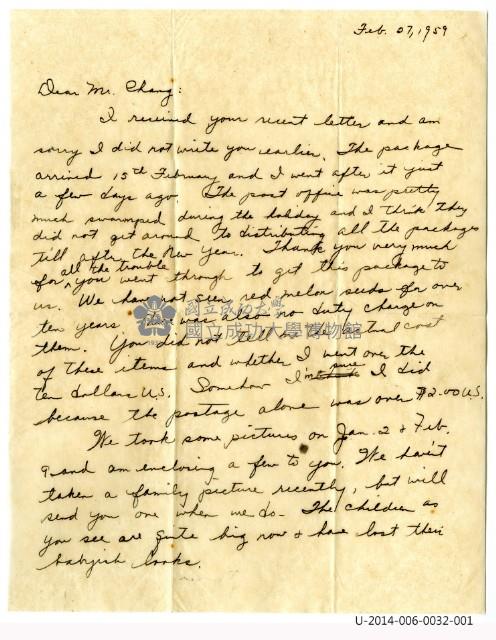 Feb. 07, 1959
Dear Mr. Chang:
I received your recent letter and am
sorry I did not write you earlier. The package
arrived 15th February and I went after it just
a few days ago. The post office was pretty
much swamped during the holiday and I think they
did not get around to distributing all the packages
till after the New Year. Thank you very much
for all the trouble you went through to get this package to
us. We have not seen red melon seeds for over
ten years. There was no duty charge on
them. You did not tell us the actual cost
of these items and whether I went over the
ten dollars U.S. Somehow I'm sure I did
because the postage alone was over $2.00 U.S.
We took some pictures on Jan. 2 & Feb.
9 and am enclosing a few to you. We haven't
taken a family picture recently, but will
send you one when we do. The children as
you see are quite big now & have lost their
babyish looks.
國立成功大學
國立成功大學博物館
U-2014-006-0032-001